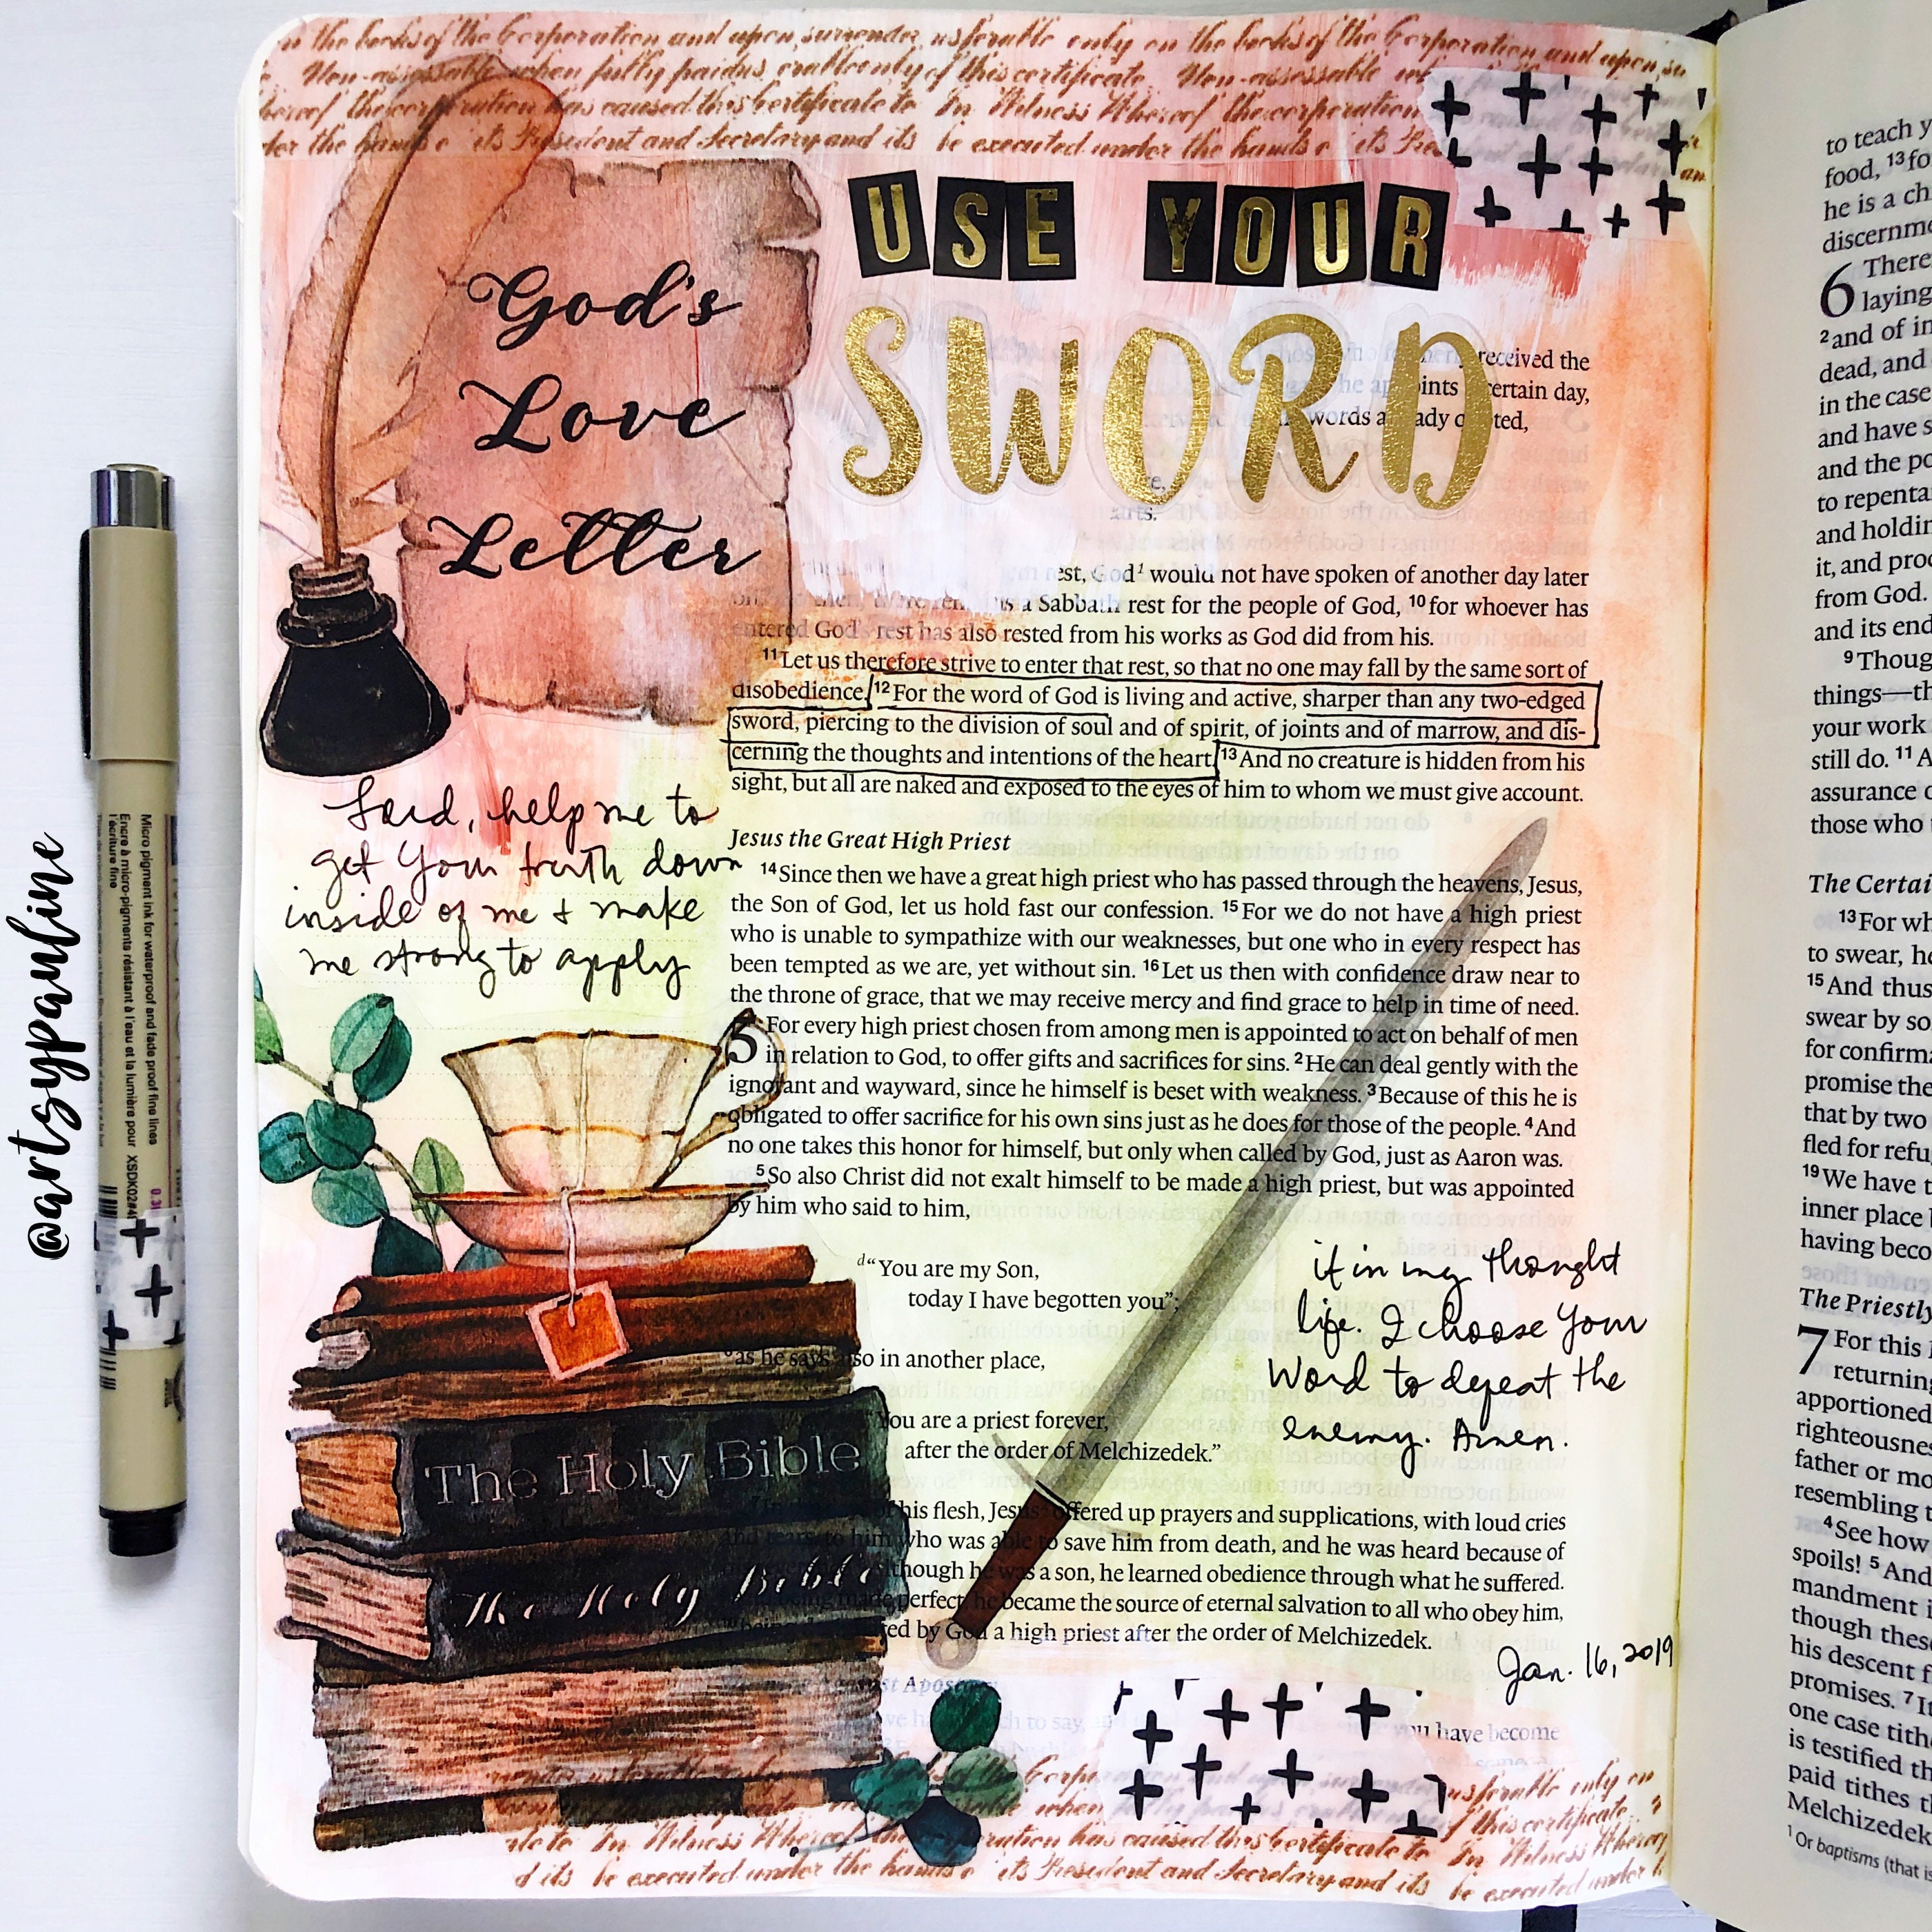 @artsypauline
Micro pigment ink for waterproof and fade proof fine lines
Encre à micro-pigments résistant à l'eau et la lumière pour
l'écriture fine
XSDK02#4
the books of the Corporation and upon surrender usferable only on the books of the Corporation and upon su
Non-assessable when fully paid only of this certificate Non-assessable
hereof the corporation has caused this Certificate to In Witness Whereof the corporation
der the hands o its President and Secretary and its be executed under the hands o its Pre
USE YOUR
SWORD
God's
Love
Letter
received the
certain day,
words
est, God¹ would not have spoken of another day later
a Sabbath rest for the people of God, 10 for whoever has
entered God's rest has also rested from his works as God did from his.
11 Let us therefore strive to enter that rest, so that no one may fall by the same sort of
disobedience. 12 For the word of God is living and active, sharper than any two-edged
sword, piercing to the division of soul and of spirit, of joints and of marrow, and dis-
cerning the thoughts and intentions of the heart. 13 And no creature is hidden from his
sight, but all are naked and exposed to the eyes of him to whom we must give account.
Lord, help me to
get Your truth down
inside of me & make
me strong to apply
Jesus the Great High Priest
14 Since then we have a great high priest who has passed through the heavens, Jesus,
the Son of God, let us hold fast our confession. 15 For we do not have a high priest
who is unable to sympathize with our weaknesses, but one who in every respect has
been tempted as we are, yet without sin. 16 Let us then with confidence draw near to
the throne of grace, that we may receive mercy and find grace to help in time of need.
5 For every high priest chosen from among men is appointed to act on behalf of men
in relation to God, to offer gifts and sacrifices for sins. 2 He can deal gently with the
ignorant and wayward, since he himself is beset with weakness. 3 Because of this he is
obligated to offer sacrifice for his own sins just as he does for those of the people. 4 And
no one takes this honor for himself, but only when called by God, just as Aaron was.
5 So also Christ did not exalt himself to be made a high priest, but was appointed
by him who said to him,
d "You are my Son,
today I have begotten you";
as he says also in another place,
You are a priest forever,
after the order of Melchizedek."
it in my thought
life. I choose Your
Word to defeat the
enemy. Amen.
The Holy Bible
The Holy Bible
his flesh, Jesus offered up prayers and supplications, with loud cries
and tears, to him who was able to save him from death, and he was heard because of
though he was a son, he learned obedience through what he suffered.
being made perfect, he became the source of eternal salvation to all who obey him,
ted by God a high priest after the order of Melchizedek.
Jan. 16, 2019
you have become
usferable only on
when fully of this certificate.
In Witness Whereof the corporation has caused this Certificate to In Witness Whereof
d its be executed under the hands o its President and Secretary and its be executed under
to teach y
food, 13 fo
he is a ch
discernme
6 There
laying
2 and of in
dead, and
in the case
and have s
and the po
to repenta
and holdin
it, and pro
from God.
and its end
9 Thoug
things—th
your work
still do. 11 A
assurance o
those who
The Certai
13 For wh
to swear, he
15 And thus
swear by so
for confirma
promise the
that by two
fled for refu
19 We have t
inner place
having beco
The Priestly
7 For this
returning
apportioned
righteousnes
father or mo
resembling t
4 See how
spoils! 5 And
mandment i
though these
his descent f
promises. 7 It
one case tith
is testified th
paid tithes t
Melchizedek
1 Or baptisms (that is